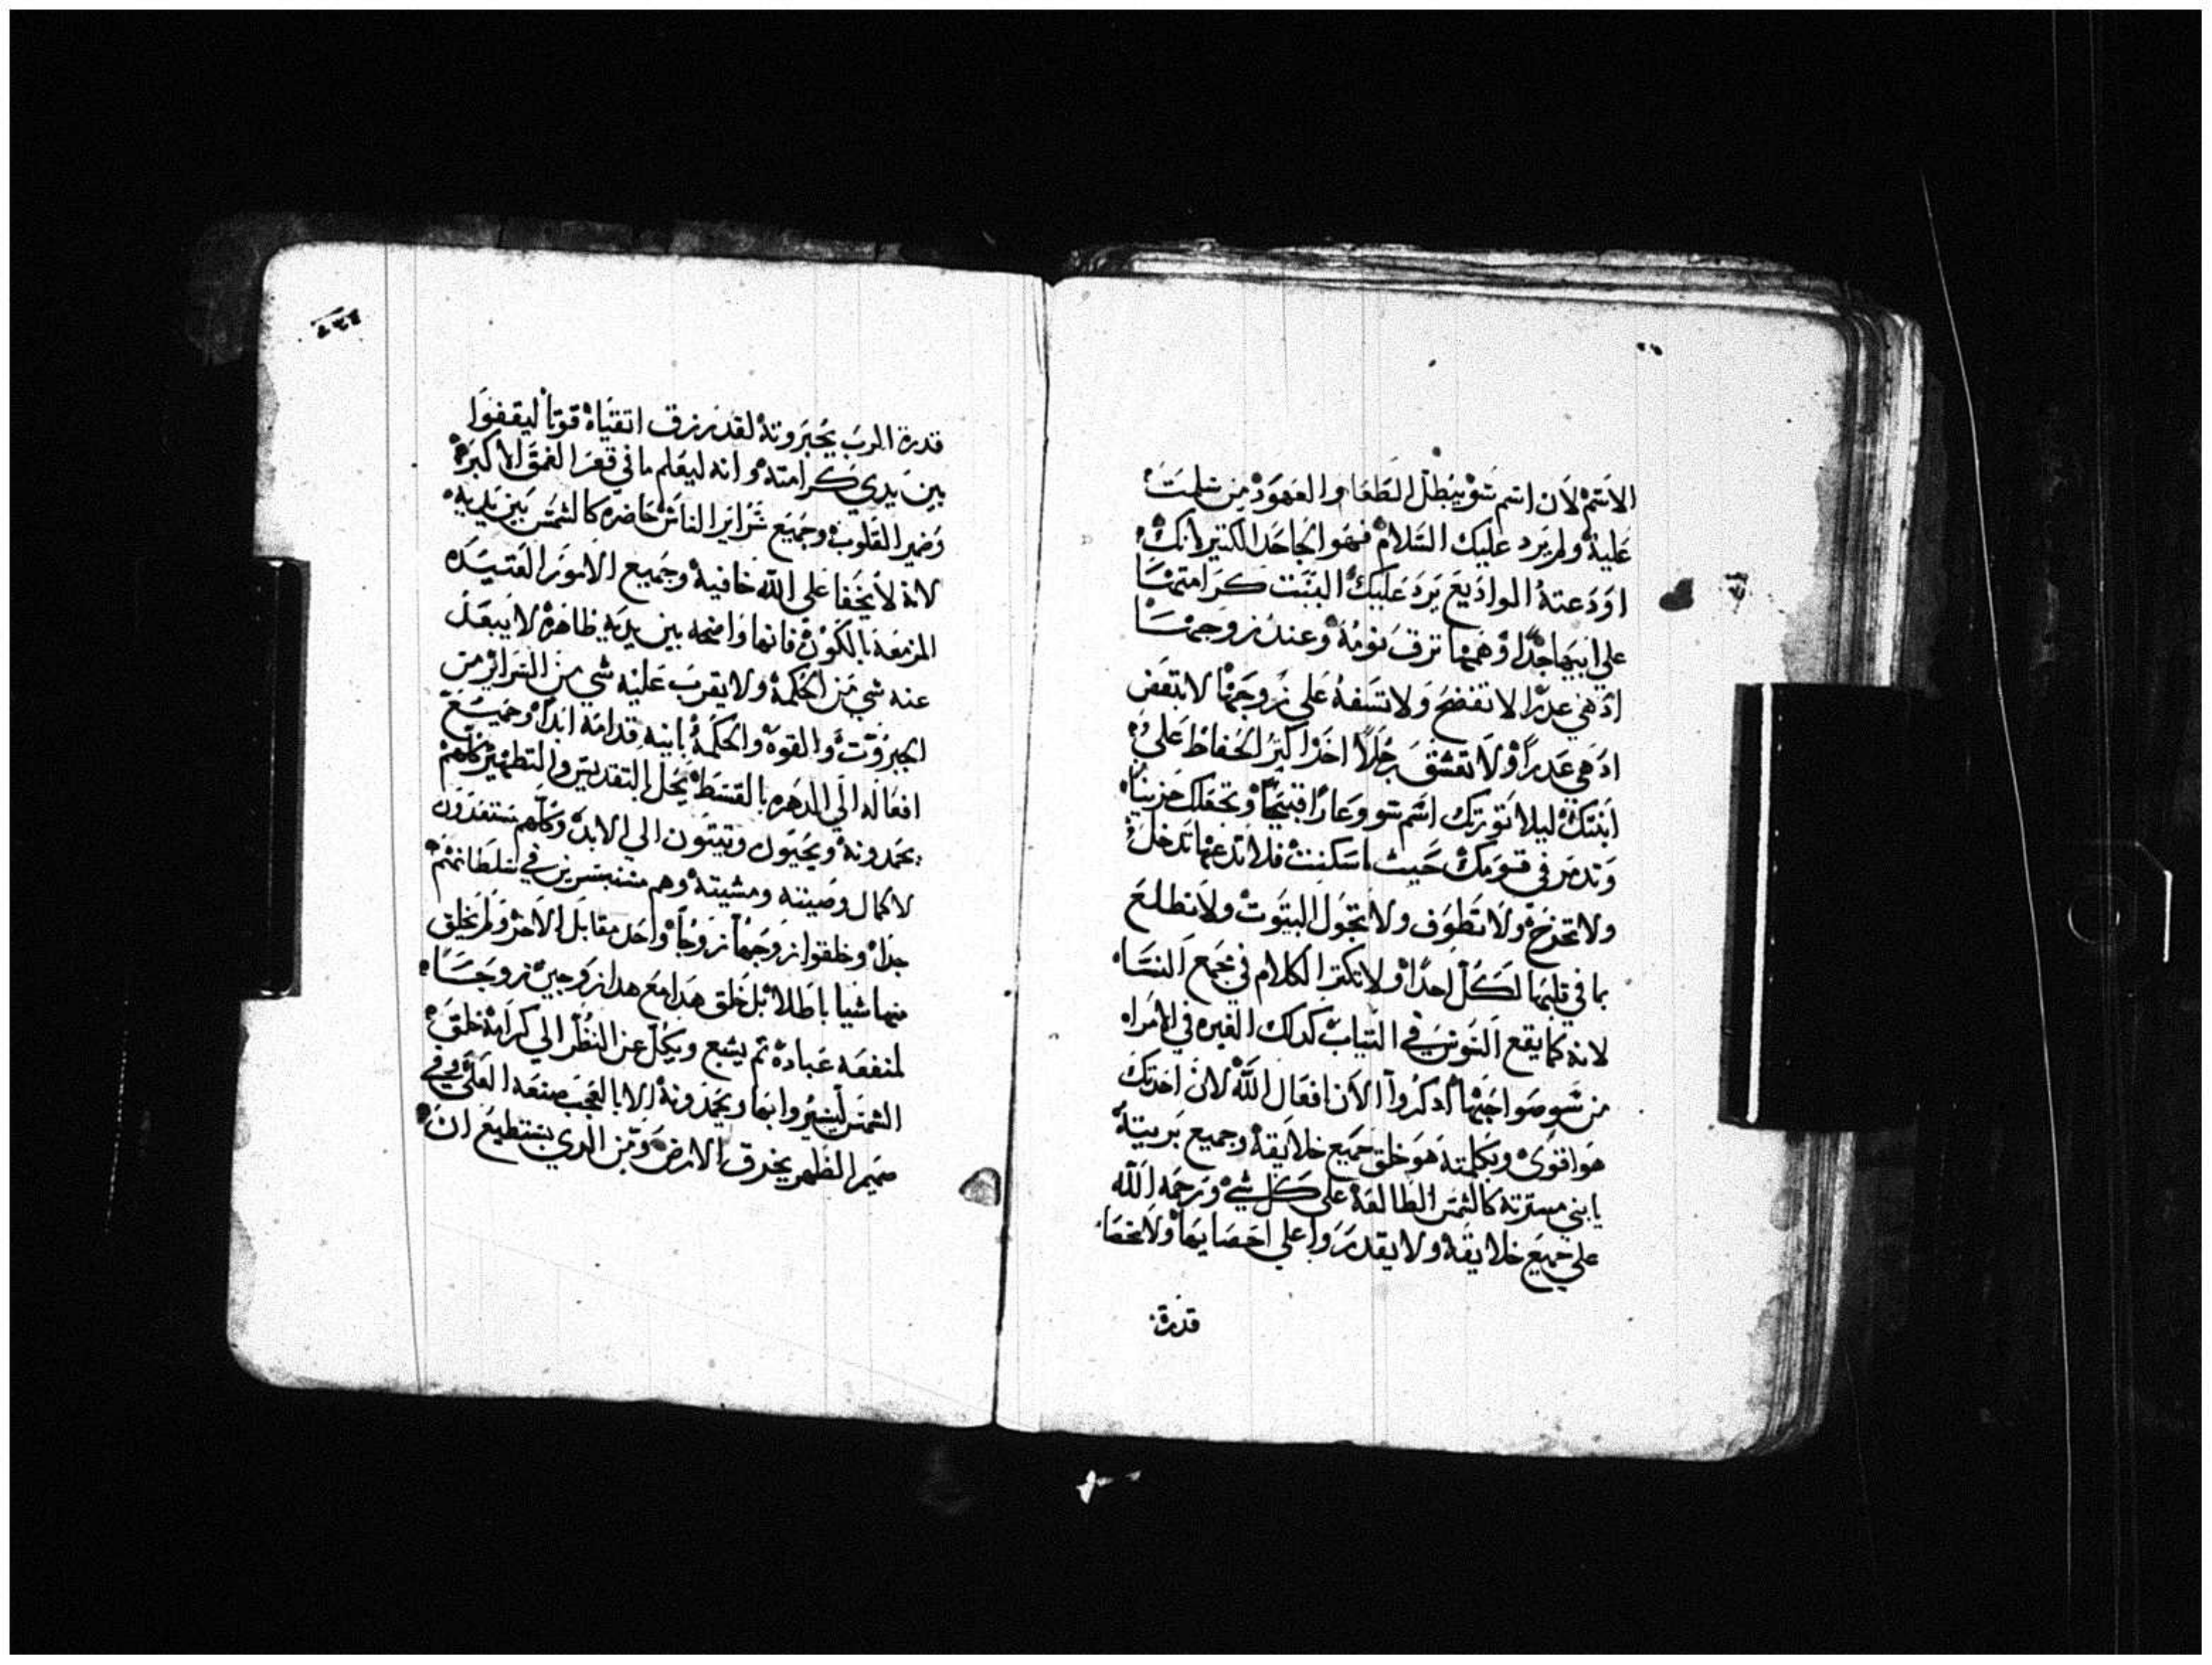 الاسم لان اسم سو يبطل الطعام والعهود من سلمت
عليه ولم يرد عليك السلام فهو الجاحد الكتير لانك
اودعته الوداديع يرد عليك البنت كرامتها
علي ابيها جدا وهمها ترق نومه وعند زوجها
ادهي عدرا لا تفضح ولا تسفه علي زوجها لا تبغض
ادهي عدرا ولا تعشق رجلا اخر اكتر الحفاظ علي
ابنتك ليلا تورتك اسم سو وعارا قبيحا وتجعلك حزينا
وتدمر في قومك حيث ما سكنت فلا تدعها تدخل
ولا تخرج ولا تطوف ولا تجول البيوت ولا تطلع
بما في قلبها لكل احدا ولا تكتر الكلام في مجمع النسا
لانه كما يقع السوس في التياب كدلك الغيره في الامراه
من سو صواحبها ادكروا الان افعال الله لان احدتك
هو اقوي وبكلمته هو خلق جميع خلايقه وجميع بريته
يابني مسرته كالشمس الطالعه علي كل شي ورحمه الله
علي جميع خلايقه ولا يقدروا علي احصايها ولا تحصا
قدرة
قدرة الرب بجبروته لقد رزق اتقياه قوتا ليقفوا
بين يدي كرامته وانه ليعلم ما في قعر الغمق الاكبر
وضمير القلوب وجميع سراير الناس حاضره كالشمس بين يديه
لانه لا يخفا علي الله خافيه وجميع الامور العتيده
المزمعه بالكون فانها واضحه بين يديه ظاهره لا يبعد
عنه شي من الحكمه ولا يقرب عليه شي من السراير من
الجبروت والقوه والحكمه بابنيه قدامه ابدا وجميع
افعاله الي الدهره بالقسط بحل التقديس والتطهير كلهم
يحمدونه ويحيون ويتبتون الي الابد وكلهم مستعدون
لاكمال وصيته ومشيته وهم مستبشرين في سلطانهم
جدا وخلقوا زوجها زوجا واحد مقابل الاخر ولم يخلق
منها شيا باطلا بل خلق هدا مع هدا زوجين زوجا
لمنفعه عباده تم يشبع ويكل عن النظر الي كرامة خلقه
الشمس ليسيروا بها ويحمدونه الا بالعجب صنعه العلي وفي
صميم الظهر يحرق الارض ومن الدي يستطيع ان